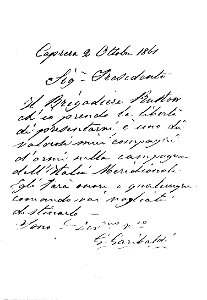 Caprera 2 Ottobre 1861
Sigr Presidente
Il Brigadiere
ch'io prendo la libertà
di presentarvi è uno dei
valorosi miei compagni
d'armi nella campagna
dell'Italia Meridionale
Egli farà onore a qualunque
comando
Vostro
G Garibaldi